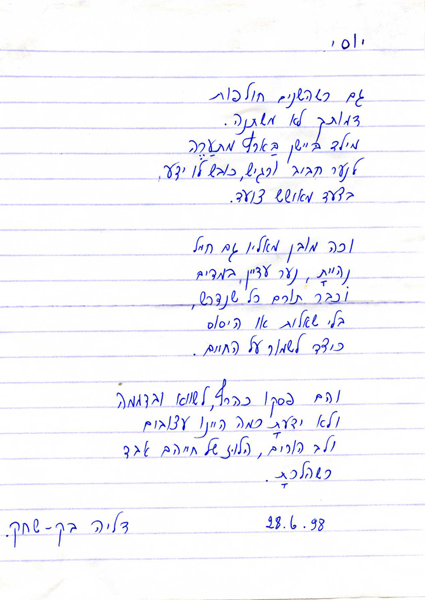 יוסי.
גם כשהשנים חולפות
דמותך לא משתנה.
מילד ביישן בָּארץ מתעָרֶה
לנער חביב ורגיש, כובש לו ידע,
בצעד מאושש צועד.
וכה מובן מאליו גם חייל
נהייתָ, נער עדיין, במדים
וכבר תורם כל שנדרש,
בלי שאלות או היסוס
כיצד לשמור על החיים.
והם פסקו כהרף, לשווא ובדממה
ולא ידעתָ כמה היינו עצובים
ולב הורים, הלוז של חייהם אבד
כשהלכתָ.
28.6.98 דליה בק-שחק.